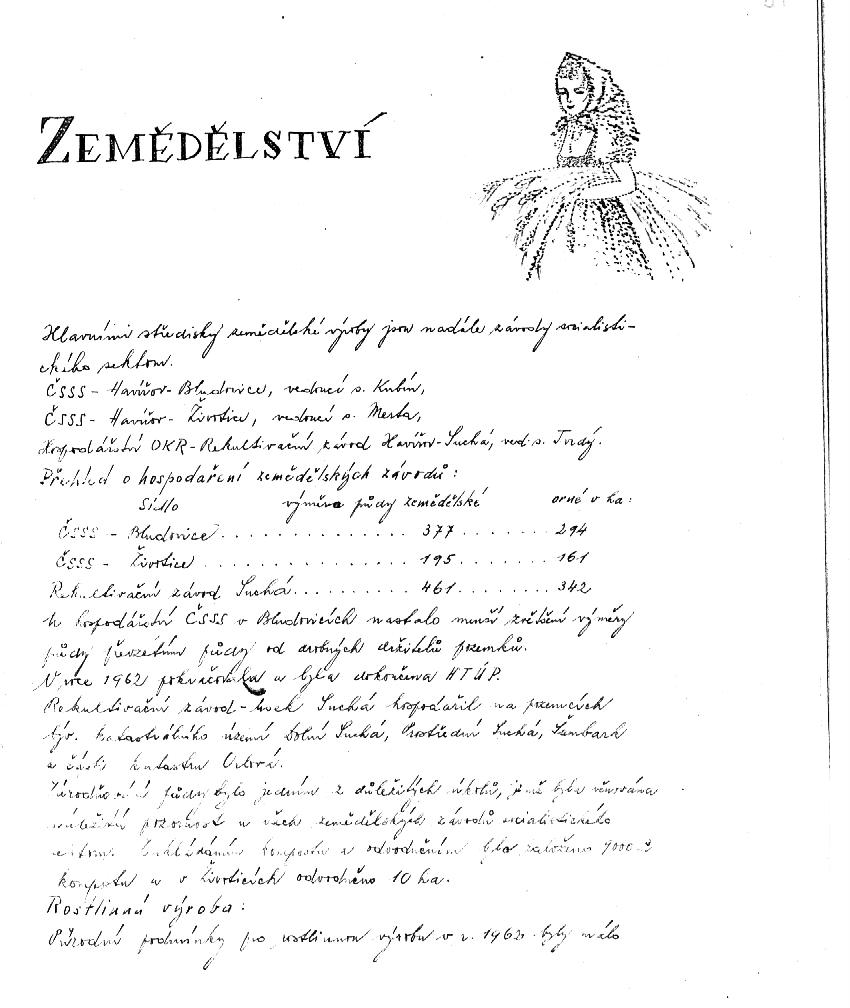 ZEMĚDĚLSTVÍ
Hlavními středisky zemědělské výroby jsou nadále závody socialisti-
ckého sektoru.
ČSSS - Havířov-Bludovice, vedoucí s. Kubín,
ČSSS - Havířov- Životice, vedoucí s. Merta,
Hospodářství OKR-Rekultivační závod Havířov-Suchá, ved. s. Tvrdý.
Přehled o hospodaření zemědělských závodů:
Sídlo výměra půdy zemědělské orné v ha:
ČSSS - Bludovice . . . . . . . . . . . . . . . 377 . . . . . . . 294
ČSSS - Životice . . . . . . . . . . . . . . . . 195 . . . . . . . 161
Rekultivační závod Suchá . . . . . . . . . . 461 . . . . . . . . 342
U hospodářství ČSSS v Bludovicích nastalo menší zvětšení výměry
půdy převzetím půdy od drobných držitelů pozemků.
V roce 1962 pokračovala a byla dokončena HTÚP.
Rekultivační závod-úsek Suchá hospodařil na pozemcích
býv. katastrálního území Dolní Suchá, Prostřední Suchá, Šumbark
a části katastru Orlová.
půdy bylo jedním z důležitých úkolů, jemuž byla věnována
náležitá pozornost u všech zemědělských závodů socialistického
sektoru. kompostu a odvodněním bylo založeno 9000
kompostu a v Životicích odvodněno 10 ha.
Rostlinná výroba:
Přírodní podmínky pro rostlinnou výrobu v r. 1962 byly málo